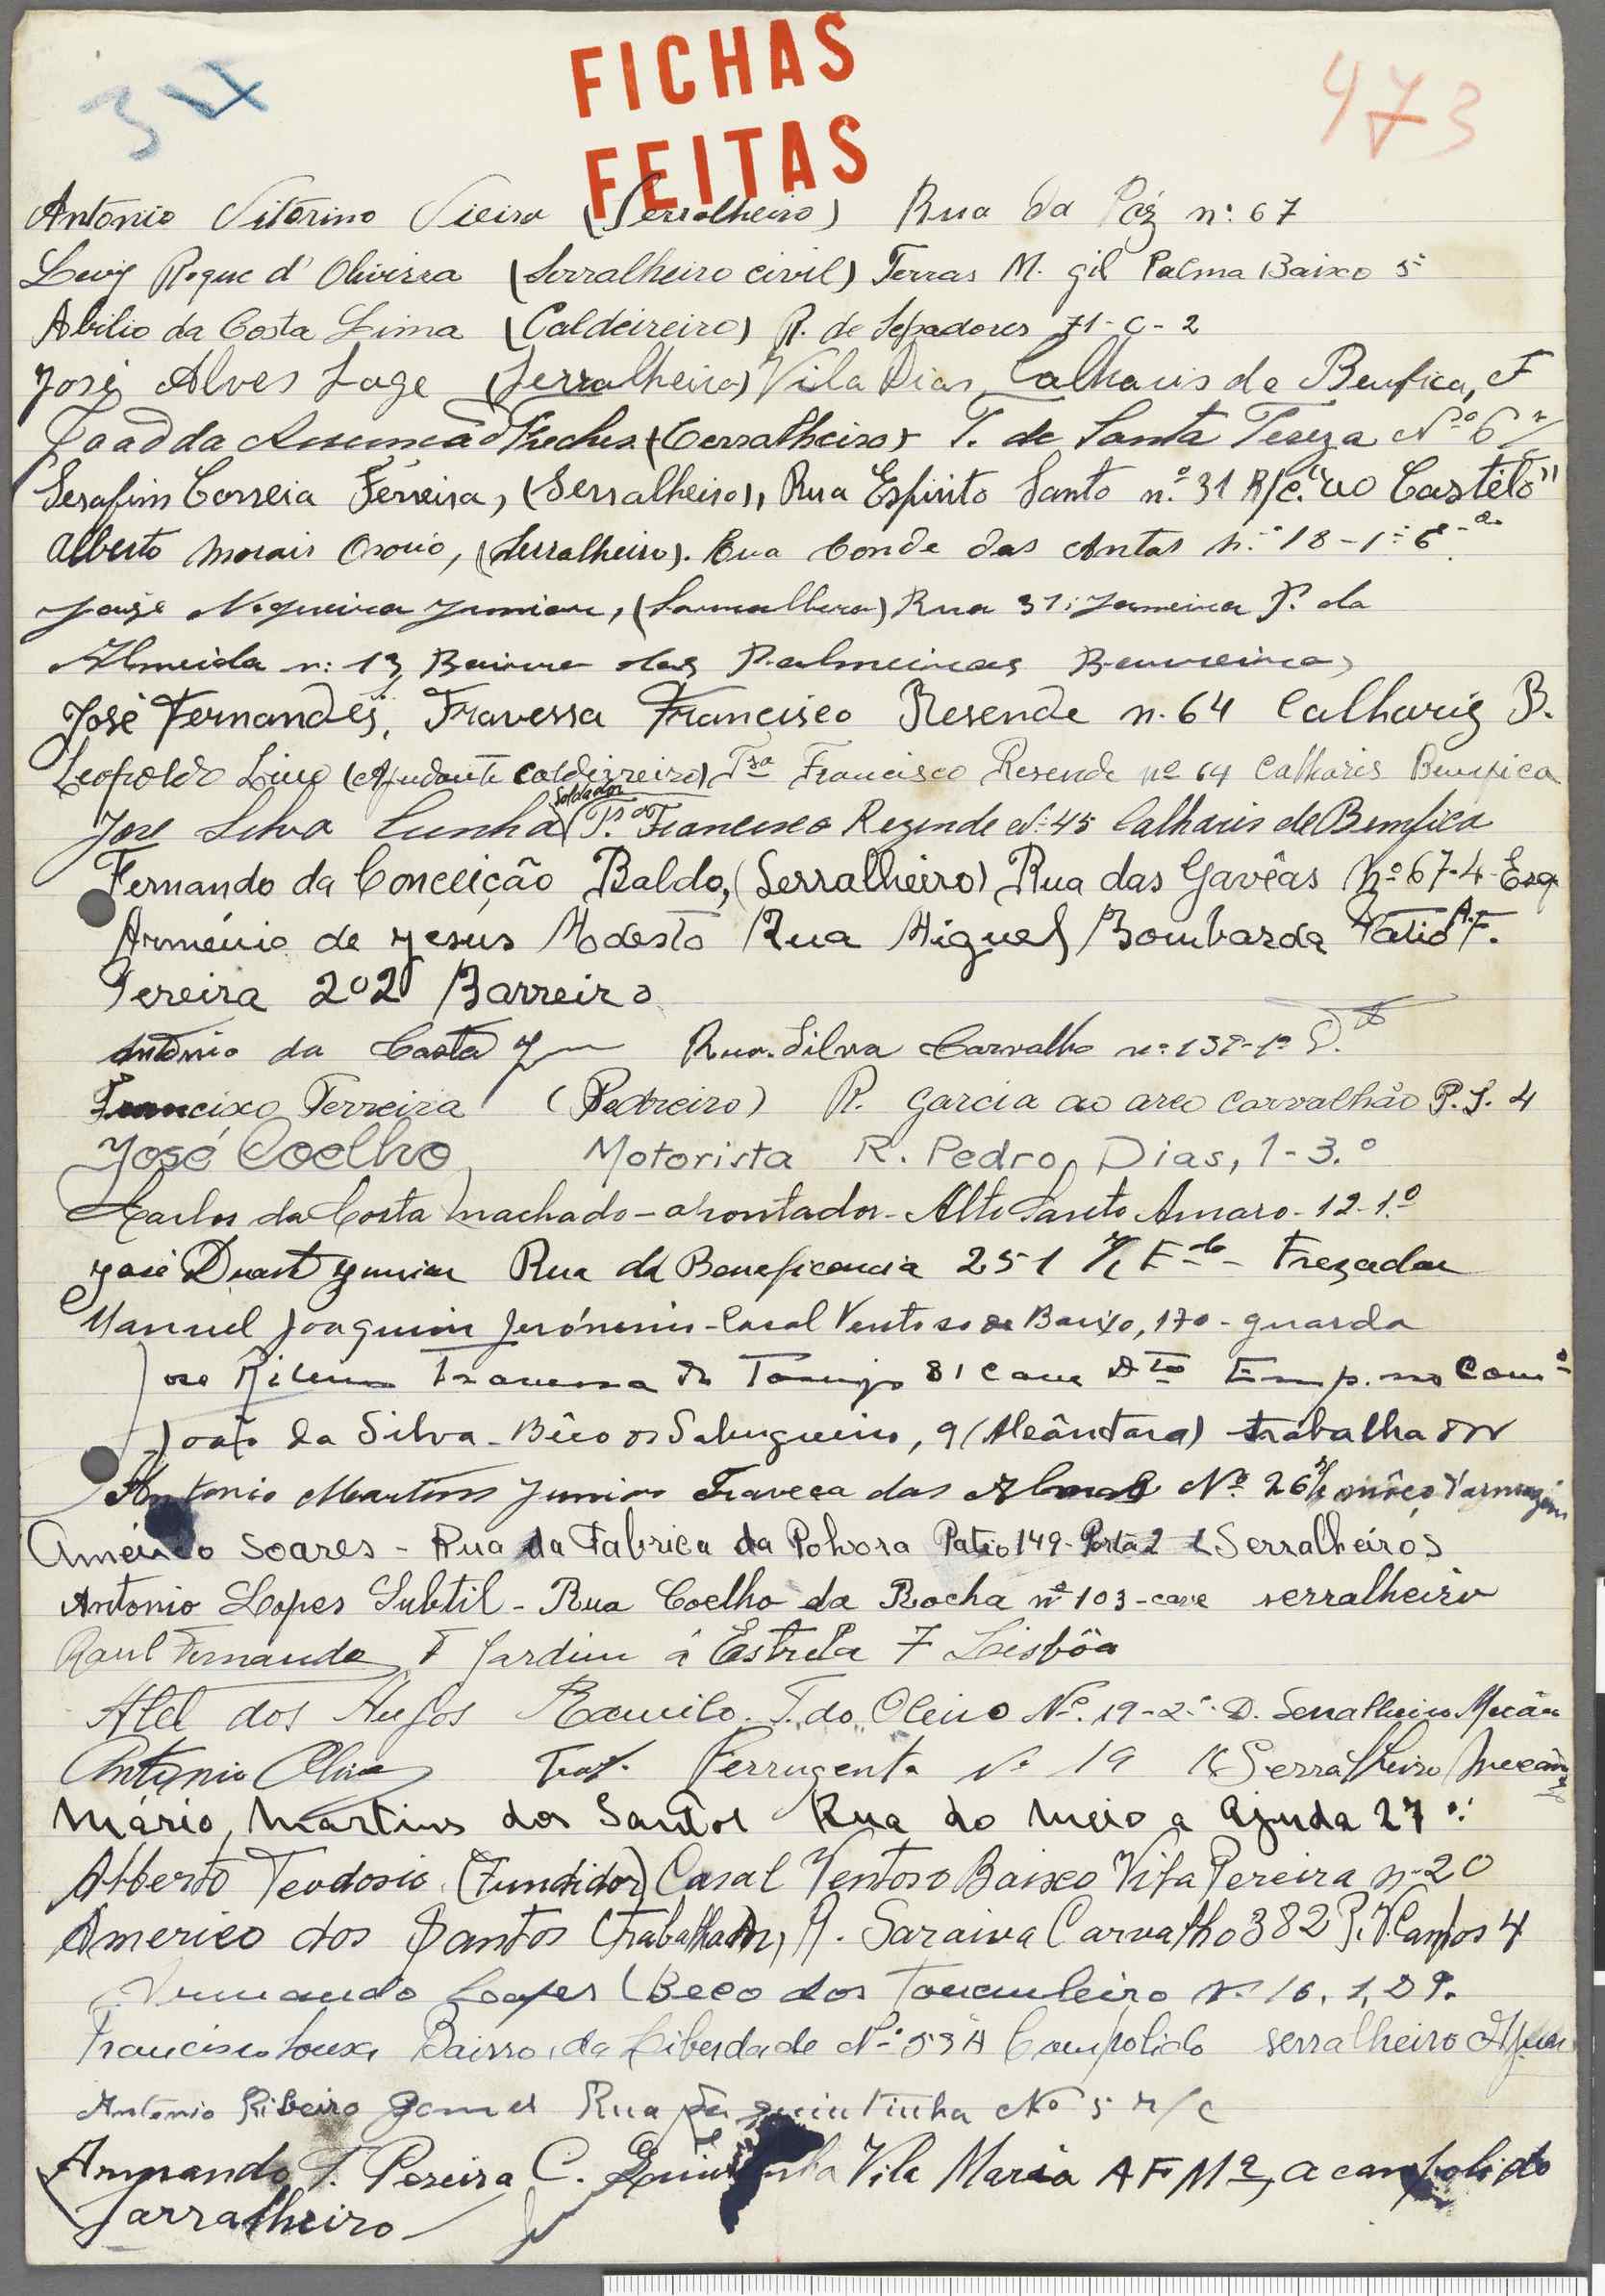 FICHAS
FEITAS
473
Antonio Vitorino Vieira (Serralheiro) Rua da Páz nº 67
Roque d'Oliveira (Serralheiro civil) Terras M. gil Palma Baixo 5
Abilio da Costa Lima (Caldeireiro) R. de Sapadores 71-C-2
José Alves Lage (Serralheiro) Vila Dias, Calhariz de Benfica, F
da (Cerralheiro) T. de Santa Tereza Nº 6
Serafim Correia Ferreira, (Serralheiro), Rua Espirito Santo n.º 31 R/c. "ao Castelo"
Alberto Morais Osorio, (Serralheiro). Rua Conde das Antas n.º 18-1º
Jorge Nogueira Junior, Rua 31 Janeiro P. da
Almeida nº 13, Bairro das Palmeiras Barreiro
José Fernandes, Travessa Francisco Resende n. 64 Calhariz B.
Leopoldo Lino (Ajudante caldirreiro) Tsa Francisco Resende nº 64 Calharis Benfica
José Silva Cunha (Soldador T.ª Francisco Rezende Nº 45 Calharis de Bemfica
Fernando da Conceição Baldo, (Serralheiro) Rua das Gavêas Nº 67-4-Esq
Arménio de Jesús Modesto Rua Miguel Bombarda Patio A. F.
Pereira 202 Barreiro
António da Costa Rua Silva Carvalho
Francixo Ferreira (Pedreiro) R. Garcia ao arco carvalhão P.S. 4
José Coelho Motorista R. Pedro Dias, 1-3.º
Carlos da Costa Machado - apontador - Alto Santo Amaro - 12-1.º
José Duarte Junior Rua da Beneficencia 251 Frezador
Manuel Joaquim Jerónimo - Casal Ventoso de Baixo, 170 - guarda
José Travessa 81 Cave Dto Emp. no Comº
João da Silva - Bêco do Sabugueiro, 9 (Alcântara) trabalhador
Antonio Martins Junior Traveça das Nº 26
Américo Soares - Rua da Fabrica da Polvora Patio 149 - Porta 2 (Serralheiro)
Antonio Lopes Subtil - Rua Coelho da Rocha nº 103 - cave serralheiro
Raul Fernandes T Jardim á Estrela 7 Lisbôa
dos Anjos Ramilo. T. do Oleiro Nº. 19-2º. D. Serralheiro Mecân
Antonio Oliva Trav. Ferrugenta Nº 19 (Serralheiro Mecan
Mário Martins dos Santos Rua do Meio a Ajuda 27
Alberto Teodosio (Fundidor) Casal Ventoso Baixo Vila Pereira nº 20
Americo dos Santos (trabalhador, R. Saraiva Carvalho 382 P. V. Campos 4
Armando Lopes (Beco dos
Francisco Sousa Bairro da Liberdade Campolide serralheiro
Antonio Ribeiro Gomes Rua da quintinha Nº 5 r/c
Armando F. Pereira C. Vila Maria AFMª, a campolide
Sarralheiro